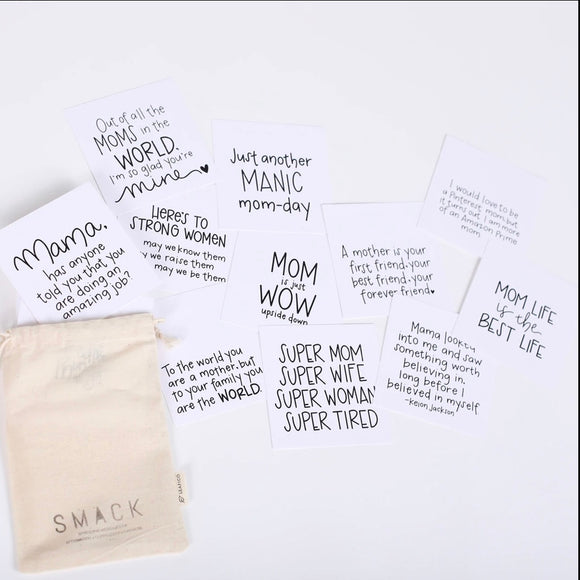 Out of all the
MOMS in the
WORLD.
I'm so glad you're
mine
Just another
MANIC
mom-day
I would love to be
a Pinterest mom but
it turns out I am more
of an Amazon Prime
mom
Mama,
has anyone
told you that you
are doing an
amazing job?
HERE'S TO
STRONG WOMEN
may we know them
we raise them
may we be them
MOM
is just
WOW
upside down
A mother is your
first friend, your
best friend, your
forever friend
MOM LIFE
is the
BEST LIFE
To the world you
are a mother, but
to your family you
are the WORLD.
SUPER MOM
SUPER WIFE
SUPER WOMAN
SUPER TIRED
Mama looked
into me and saw
something worth
believing in,
long before I
believed in myself
-keion jackson
SMACK